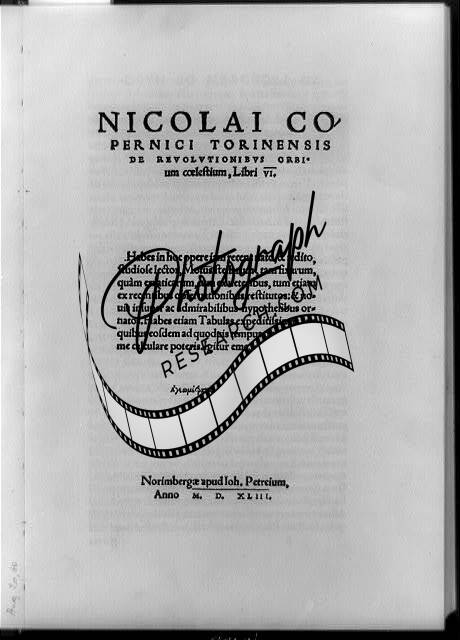 NICOLAI CO
PERNICI TORINENSIS
DE REVOLVTIONIBVS ORBI-
um cœlestium, Libri VI.
Habes in hoc opere iam recens nato, & ædito,
studiose lector, Motus stellarum, tam fixarum,
quàm erraticarum, cum ex ueteribus, tum etiam
ex recentibus obseruationibus restitutos: & no-
uis insuper ac admirabilibus hypothesibus or-
natos. Habes etiam Tabulas expeditissimas,
quibus eosdem ad quoduis tempus
me calculare poteris. Igitur eme
Photograph
RESEARCH.COM
Norimbergæ apud Ioh. Petreium,
Anno M. D. XLIII.